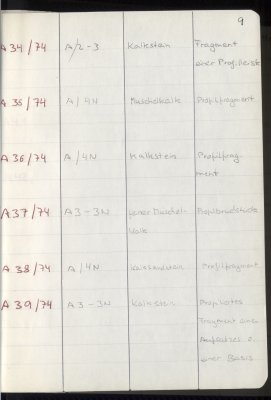 9
A 34/74 A/2-3 Kalkstein Fragment
einer Profilleiste
A 35/74 A/4N Muschelkalk Profilfragment
A 36/74 A/4N Kalkstein Profilfrag-
ment
A 37/74 A3-3N Muschel- Profilbruchstück
kalk
A 38/74 A/4N Kalksandstein Profilfragment
A 39/74 A3-3N Kalkstein Profiliertes
Fragment eines
Aufsatzes o.
einer Basis